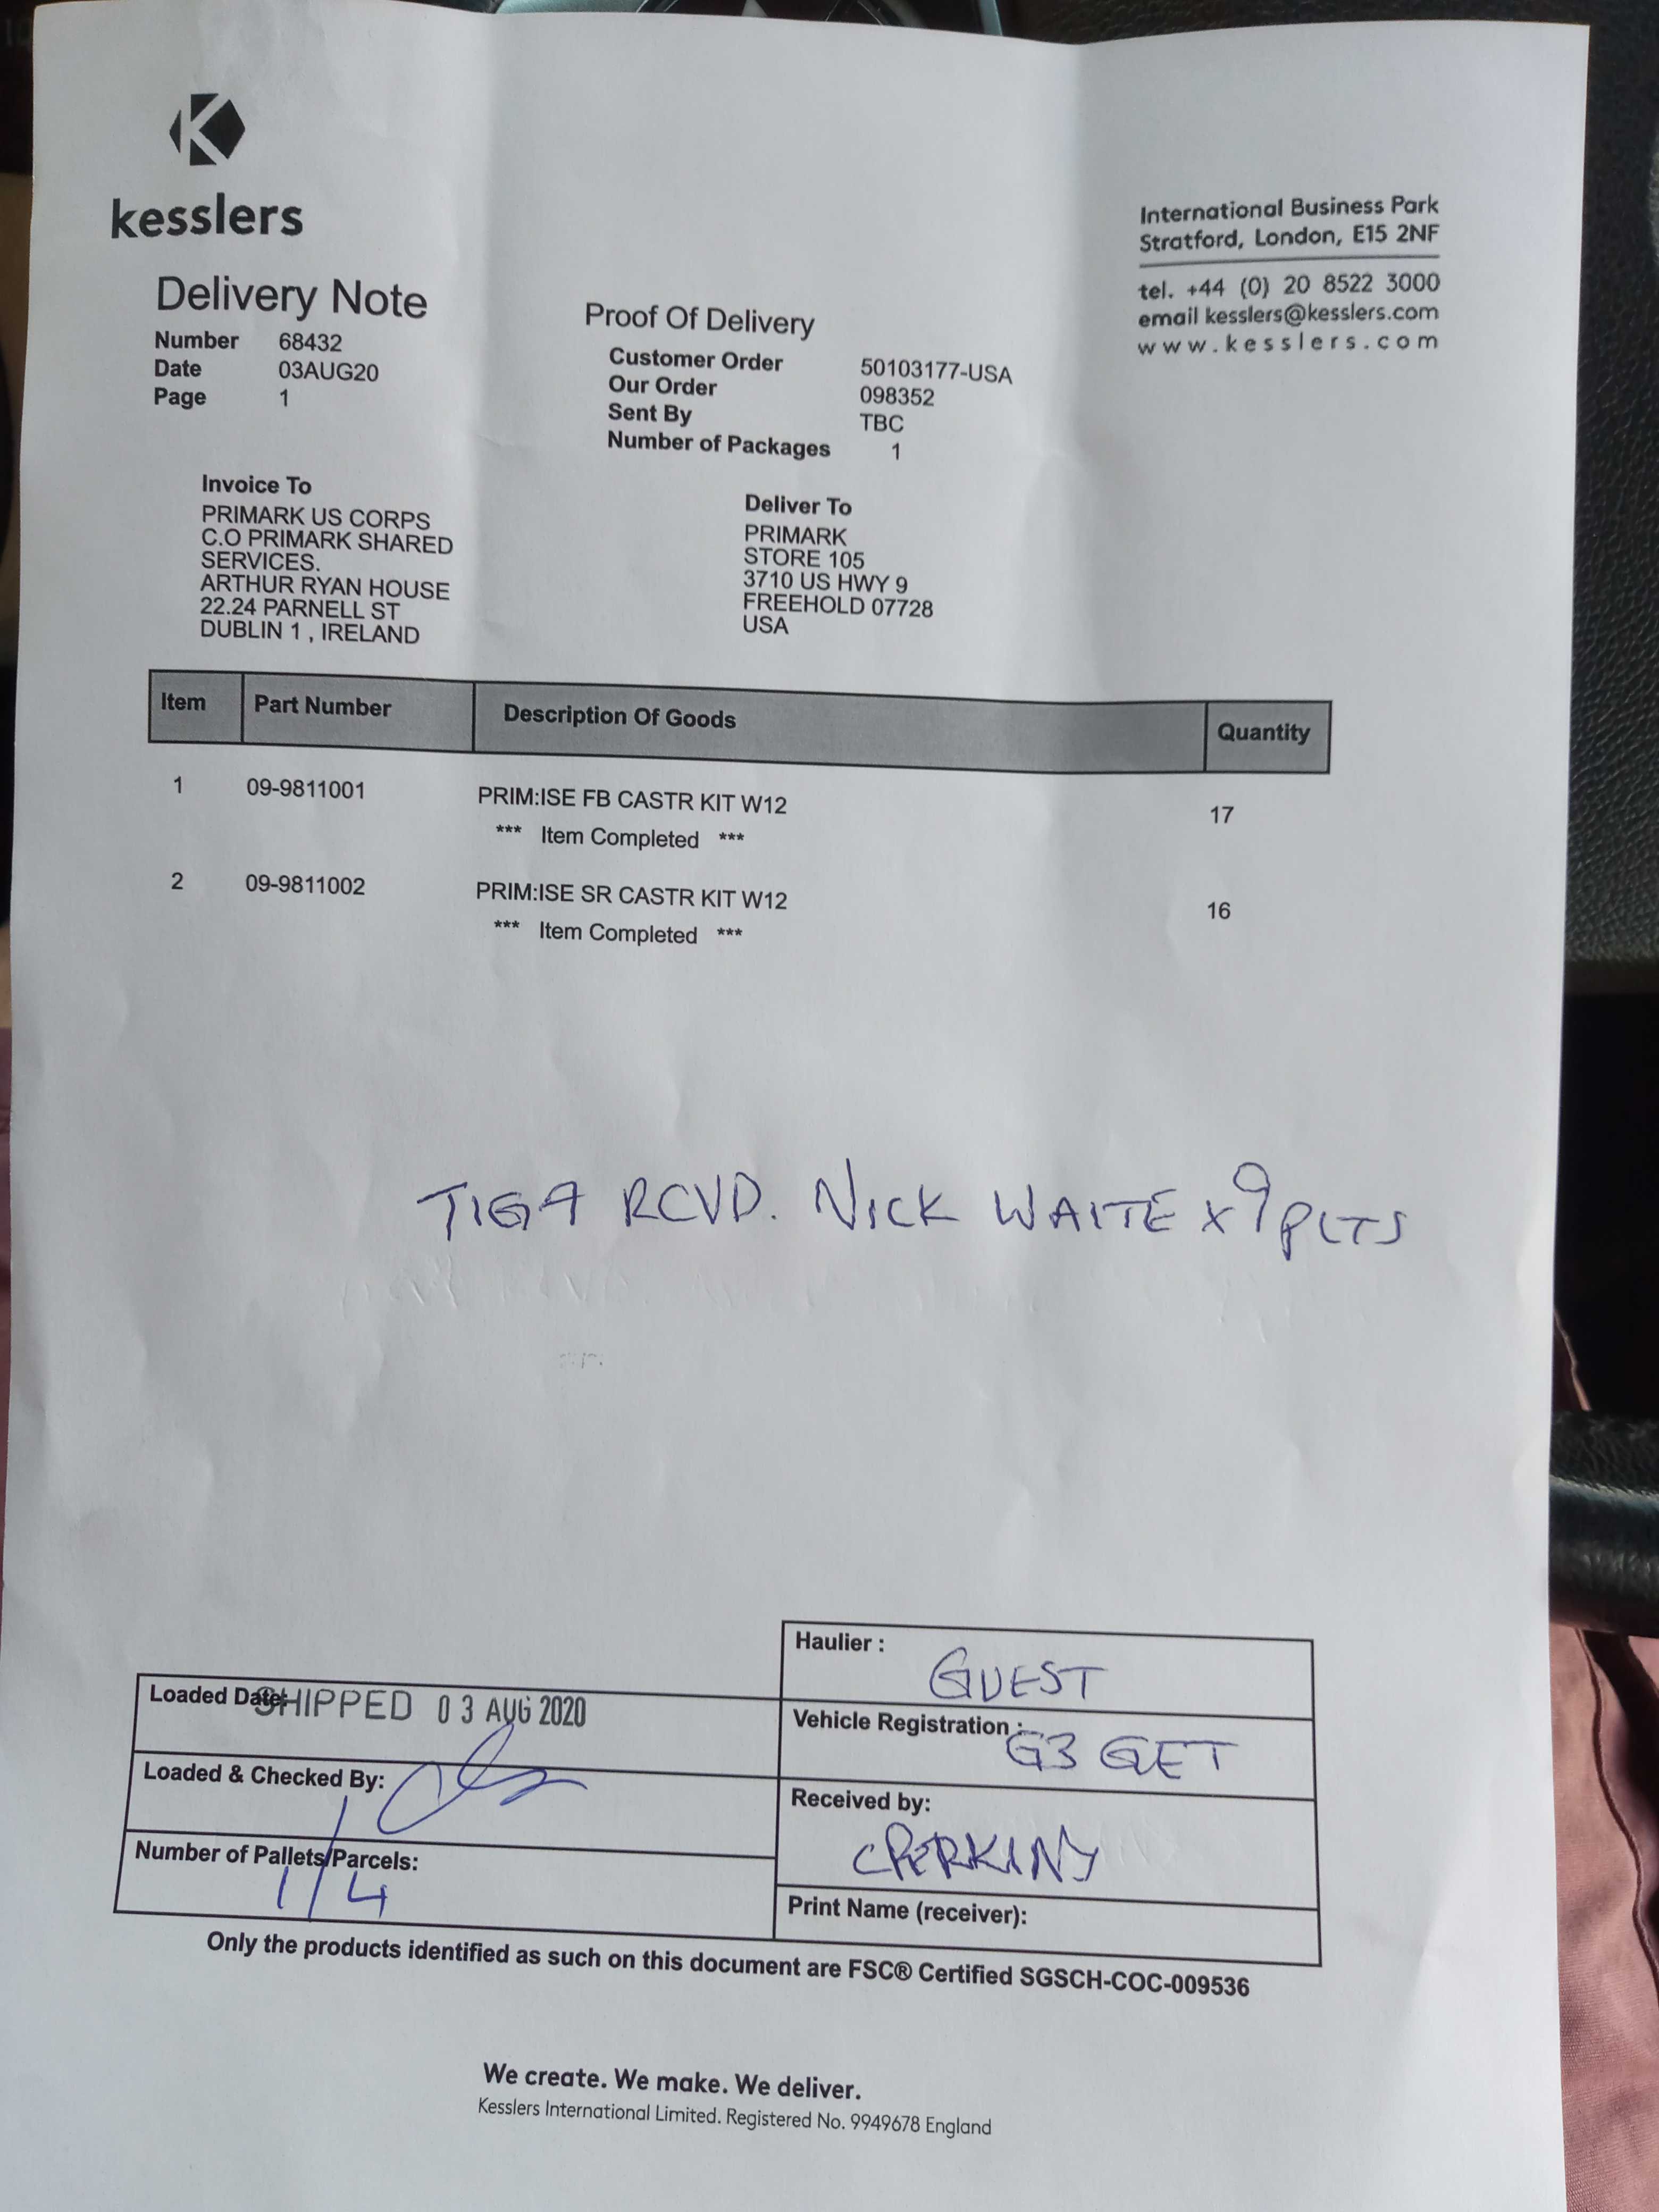 kesslers
International Business Park
Stratford, London, E15 2NF
tel. +44 (0) 20 8522 3000
email kesslers@kesslers.com
www.kesslers.com
Delivery Note
Number 68432
Date 03AUG20
Page 1
Proof Of Delivery
Customer Order 50103177-USA
Our Order 098352
Sent By TBC
Number of Packages 1
Invoice To
PRIMARK US CORPS
C.O PRIMARK SHARED
SERVICES.
ARTHUR RYAN HOUSE
22.24 PARNELL ST
DUBLIN 1 , IRELAND
Deliver To
PRIMARK
STORE 105
3710 US HWY 9
FREEHOLD 07728
USA
Item Part Number Description Of Goods Quantity
1 09-9811001 PRIM:ISE FB CASTR KIT W12 17
*** Item Completed ***
2 09-9811002 PRIM:ISE SR CASTR KIT W12 16
*** Item Completed ***
RCVD. NICK WAITE x9 PLTS
Loaded Date: SHIPPED 03 AUG 2020
Loaded & Checked By:
Number of Pallets/Parcels:
1/4
Haulier :
GUEST
Vehicle Registration :
G3 GET
Received by:
CPERKINS
Print Name (receiver):
Only the products identified as such on this document are FSC® Certified SGSCH-COC-009536
We create. We make. We deliver.
Kesslers International Limited. Registered No. 9949678 England